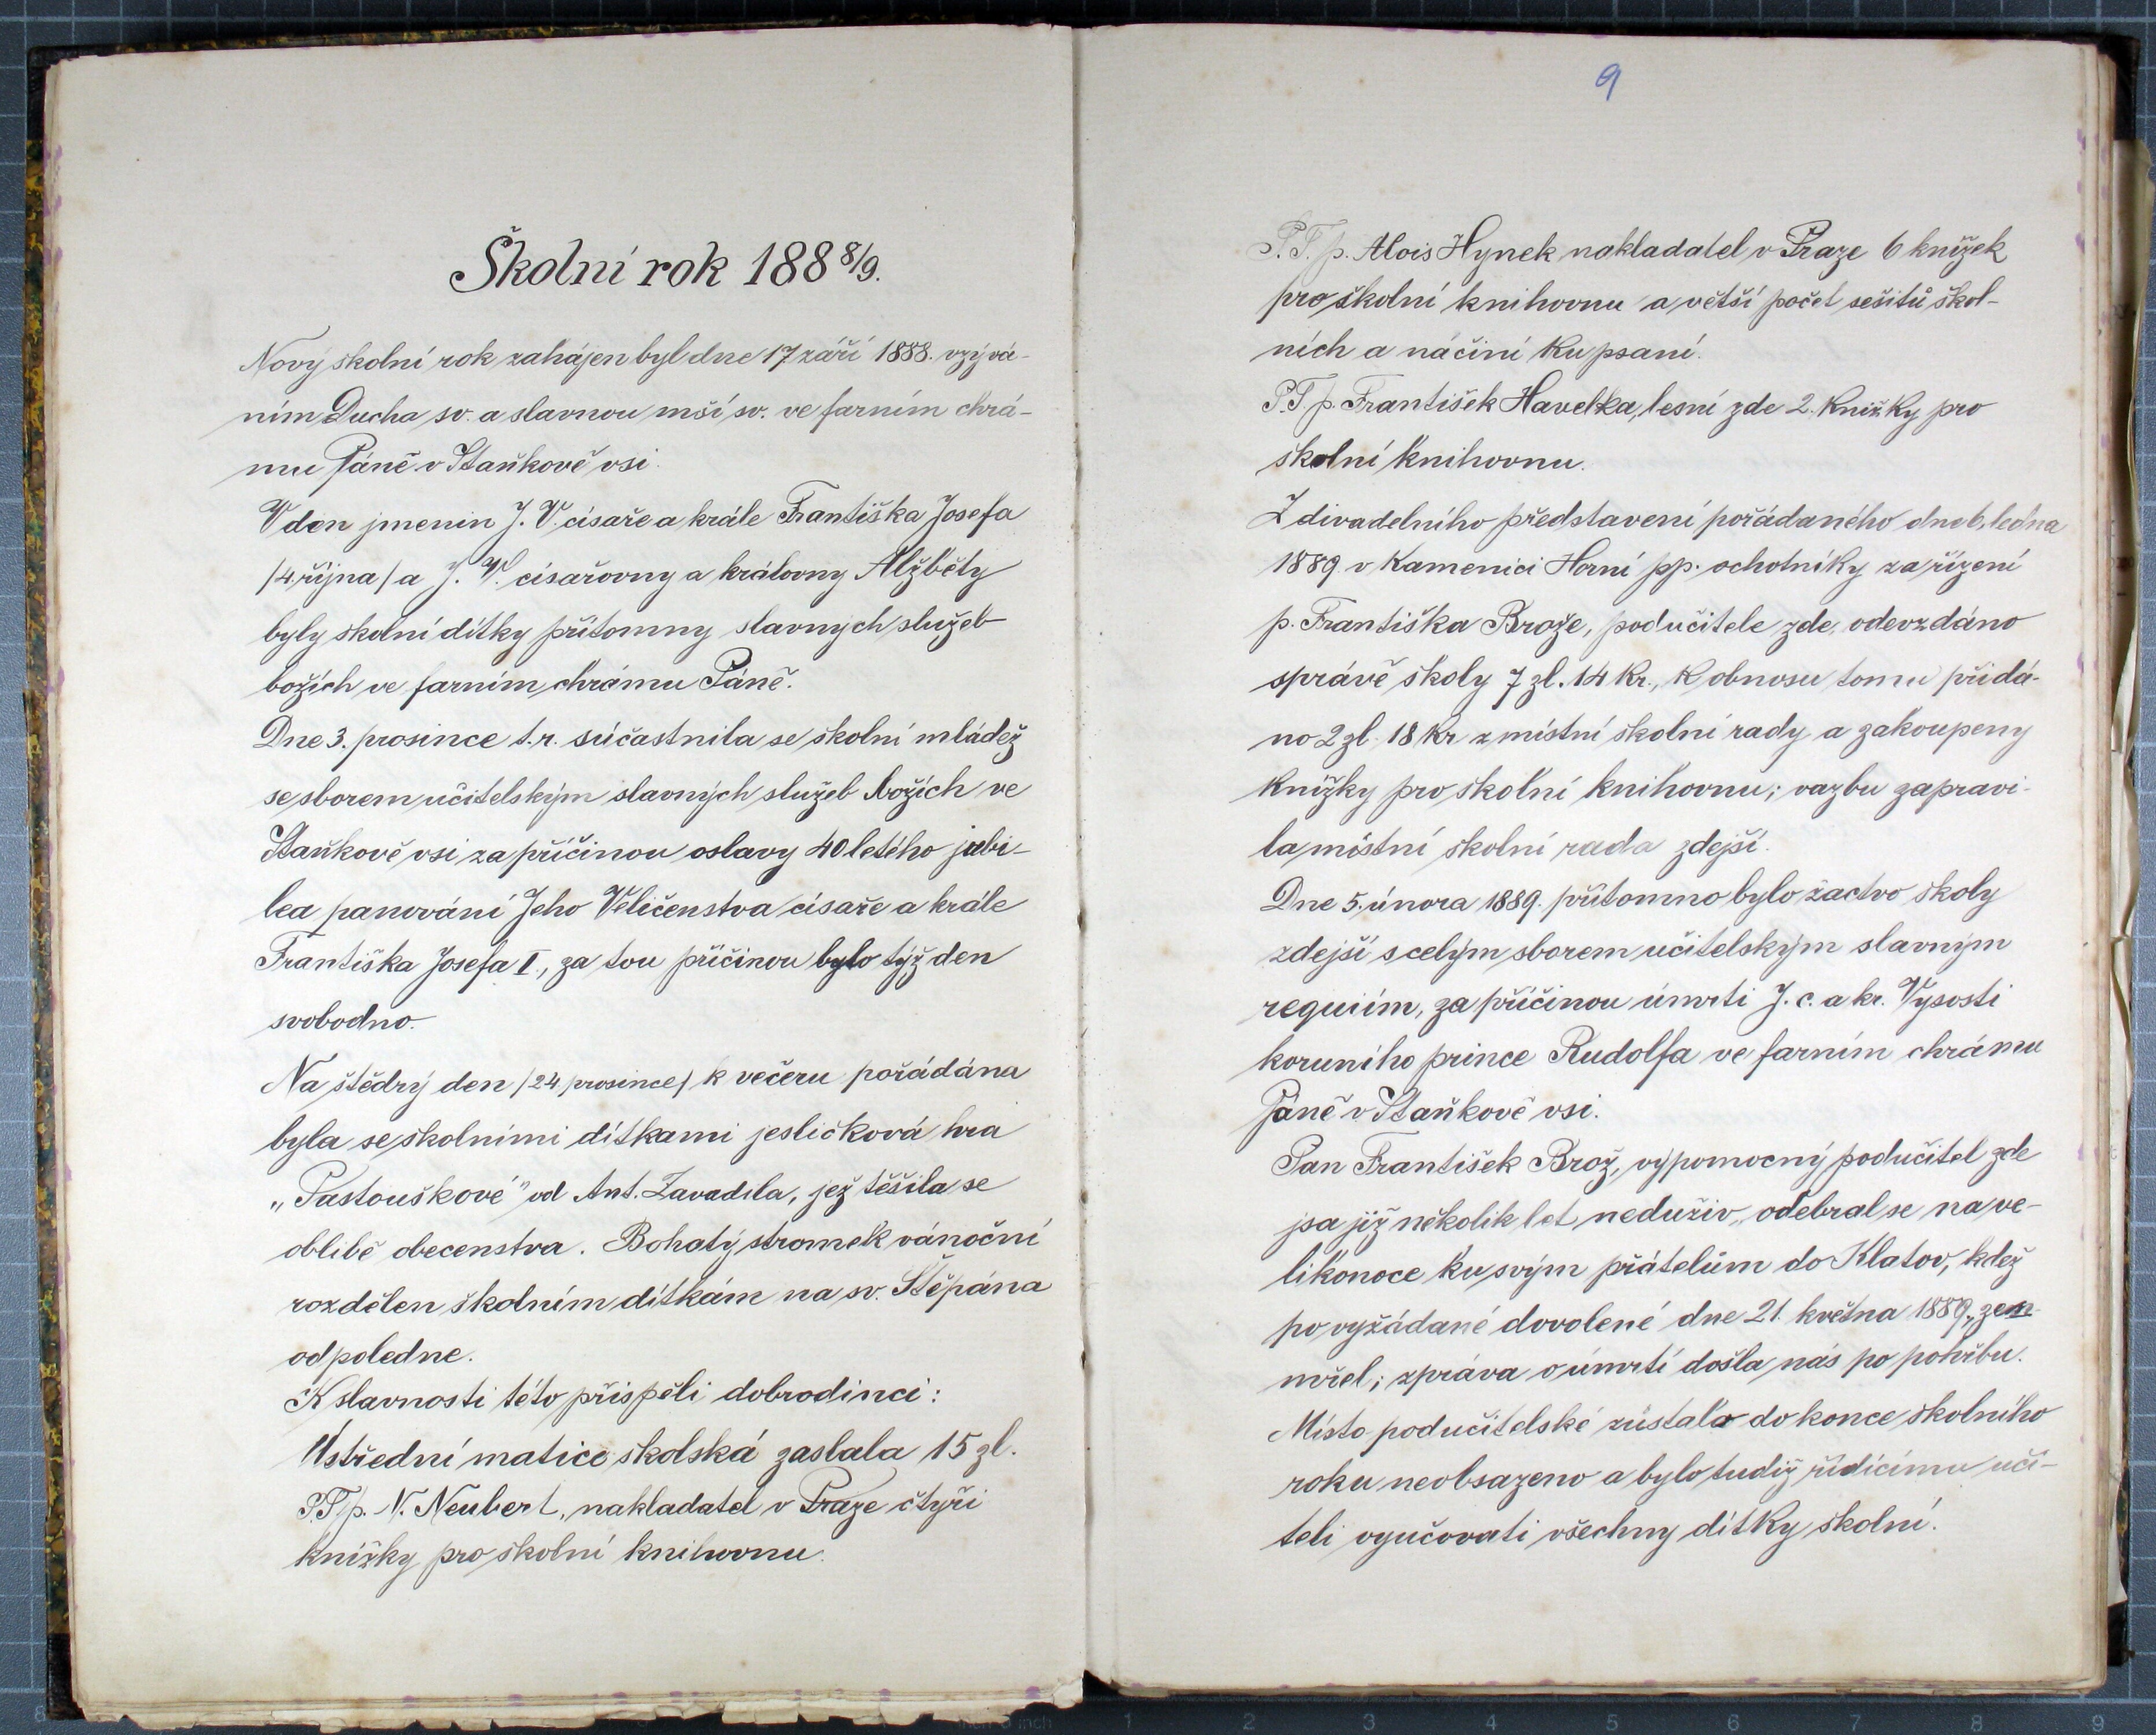 Školní rok 188 8/9.
Nový školní rok zahájen byl dne 17 září 1888. vzývá-
ním Ducha sv. a slavnou mší sv. ve farním chrá-
mu Páně v Staňkově vsi.
V den jmenin J. V. císaře a krále Františka Josefa
/4 října/ a J. V. císařovny a královny Alžběty
byly školní dítky přítomny slavných služeb
božích ve farním chrámu Páně.
Dne 3. prosince t. r. súčastnila se školní mládež
se sborem učitelským slavných služeb božích ve
Staňkově vsi za příčinou oslavy 40 letého jubi-
lea panování Jeho Veličenstva císaře a krále
Františka Josefa I., za tou příčinou bylo týž den
svobodno.
Na štědrý den /24 prosince/ k večeru pořádána
byla se školními dítkami jesličková hra
„Pastouškové" od Ant. Zavadila, jež těšila se
oblibě obecenstva. Bohatý stromek vánoční
rozdělen školním dítkám na sv. Štěpána
odpoledne.
K slavnosti této přispěli dobrodinci:
Ústřední matice školská zaslala 15 zl.
P. T. p. V. Neubert, nakladatel v Praze čtyři
knížky pro školní knihovnu.
9
P. T. p. Alois Hynek nakladatel v Praze 6 knížek
pro školní knihovnu a větší počet sešitů škol-
ních a náčiní ku psaní.
P. T. p. František Havelka, lesní zde 2. knížky pro
školní knihovnu.
Z divadelního představení pořádaného dne 6. ledna
1889 v Kamenici Horní pp. ochotníky za řízení
p. Františka Brože, podučitele zde, odevzdáno
správě školy 7 zl. 14 kr., k obnosu tomu přidá-
no 2 zl. 18 kr z místní školní rady a zakoupeny
knížky pro školní knihovnu; vazbu zapravi-
la místní školní rada zdejší.
Dne 5. února 1889. přítomno bylo žactvo školy
zdejší s celým sborem učitelským slavným
requiím, za příčinou úmrtí J. c. a kr. Vysosti
koruního prince Rudolfa ve farním chrámu
Páně v Staňkově vsi.
Pan František Brož, výpomocný podučitel zde
jsa již několik let neduživ, odebral se na ve-
likonoce ku svým přátelům do Klatov, kdež
po vyžádané dovolené dne 21. května 1889., zem-
mřel; zpráva o úmrtí došla nás po pohřbu.
Místo podučitelské zůstalo do konce školního
roku neobsazeno a bylo tudiž řídícímu uči-
teli vyučovati všechny dítky školní.